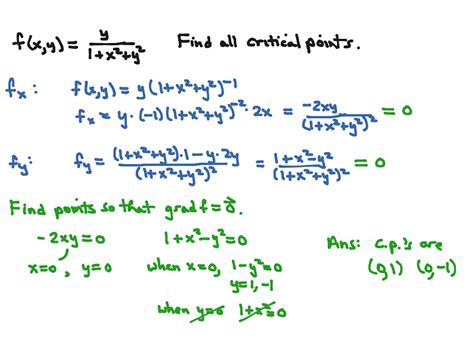 f(x,y) = y/(1+x²+y²) Find all critical points.
fx: f(x,y) = y(1+x²+y²)⁻¹
fx = y·(-1)(1+x²+y²)⁻²·2x = -2xy/(1+x²+y²)² = 0
fy: fy = ((1+x²+y²)·1-y·2y)/(1+x²+y²)² = (1+x²-y²)/(1+x²+y²)² = 0
Find points so that grad f = 0⃗.
-2xy=0 1+x²-y²=0
x=0, y=0 when x=0, 1-y²=0
y=1,-1
when y=0 1+x²=0
Ans: c.p.'s are
(0,1) (0,-1)